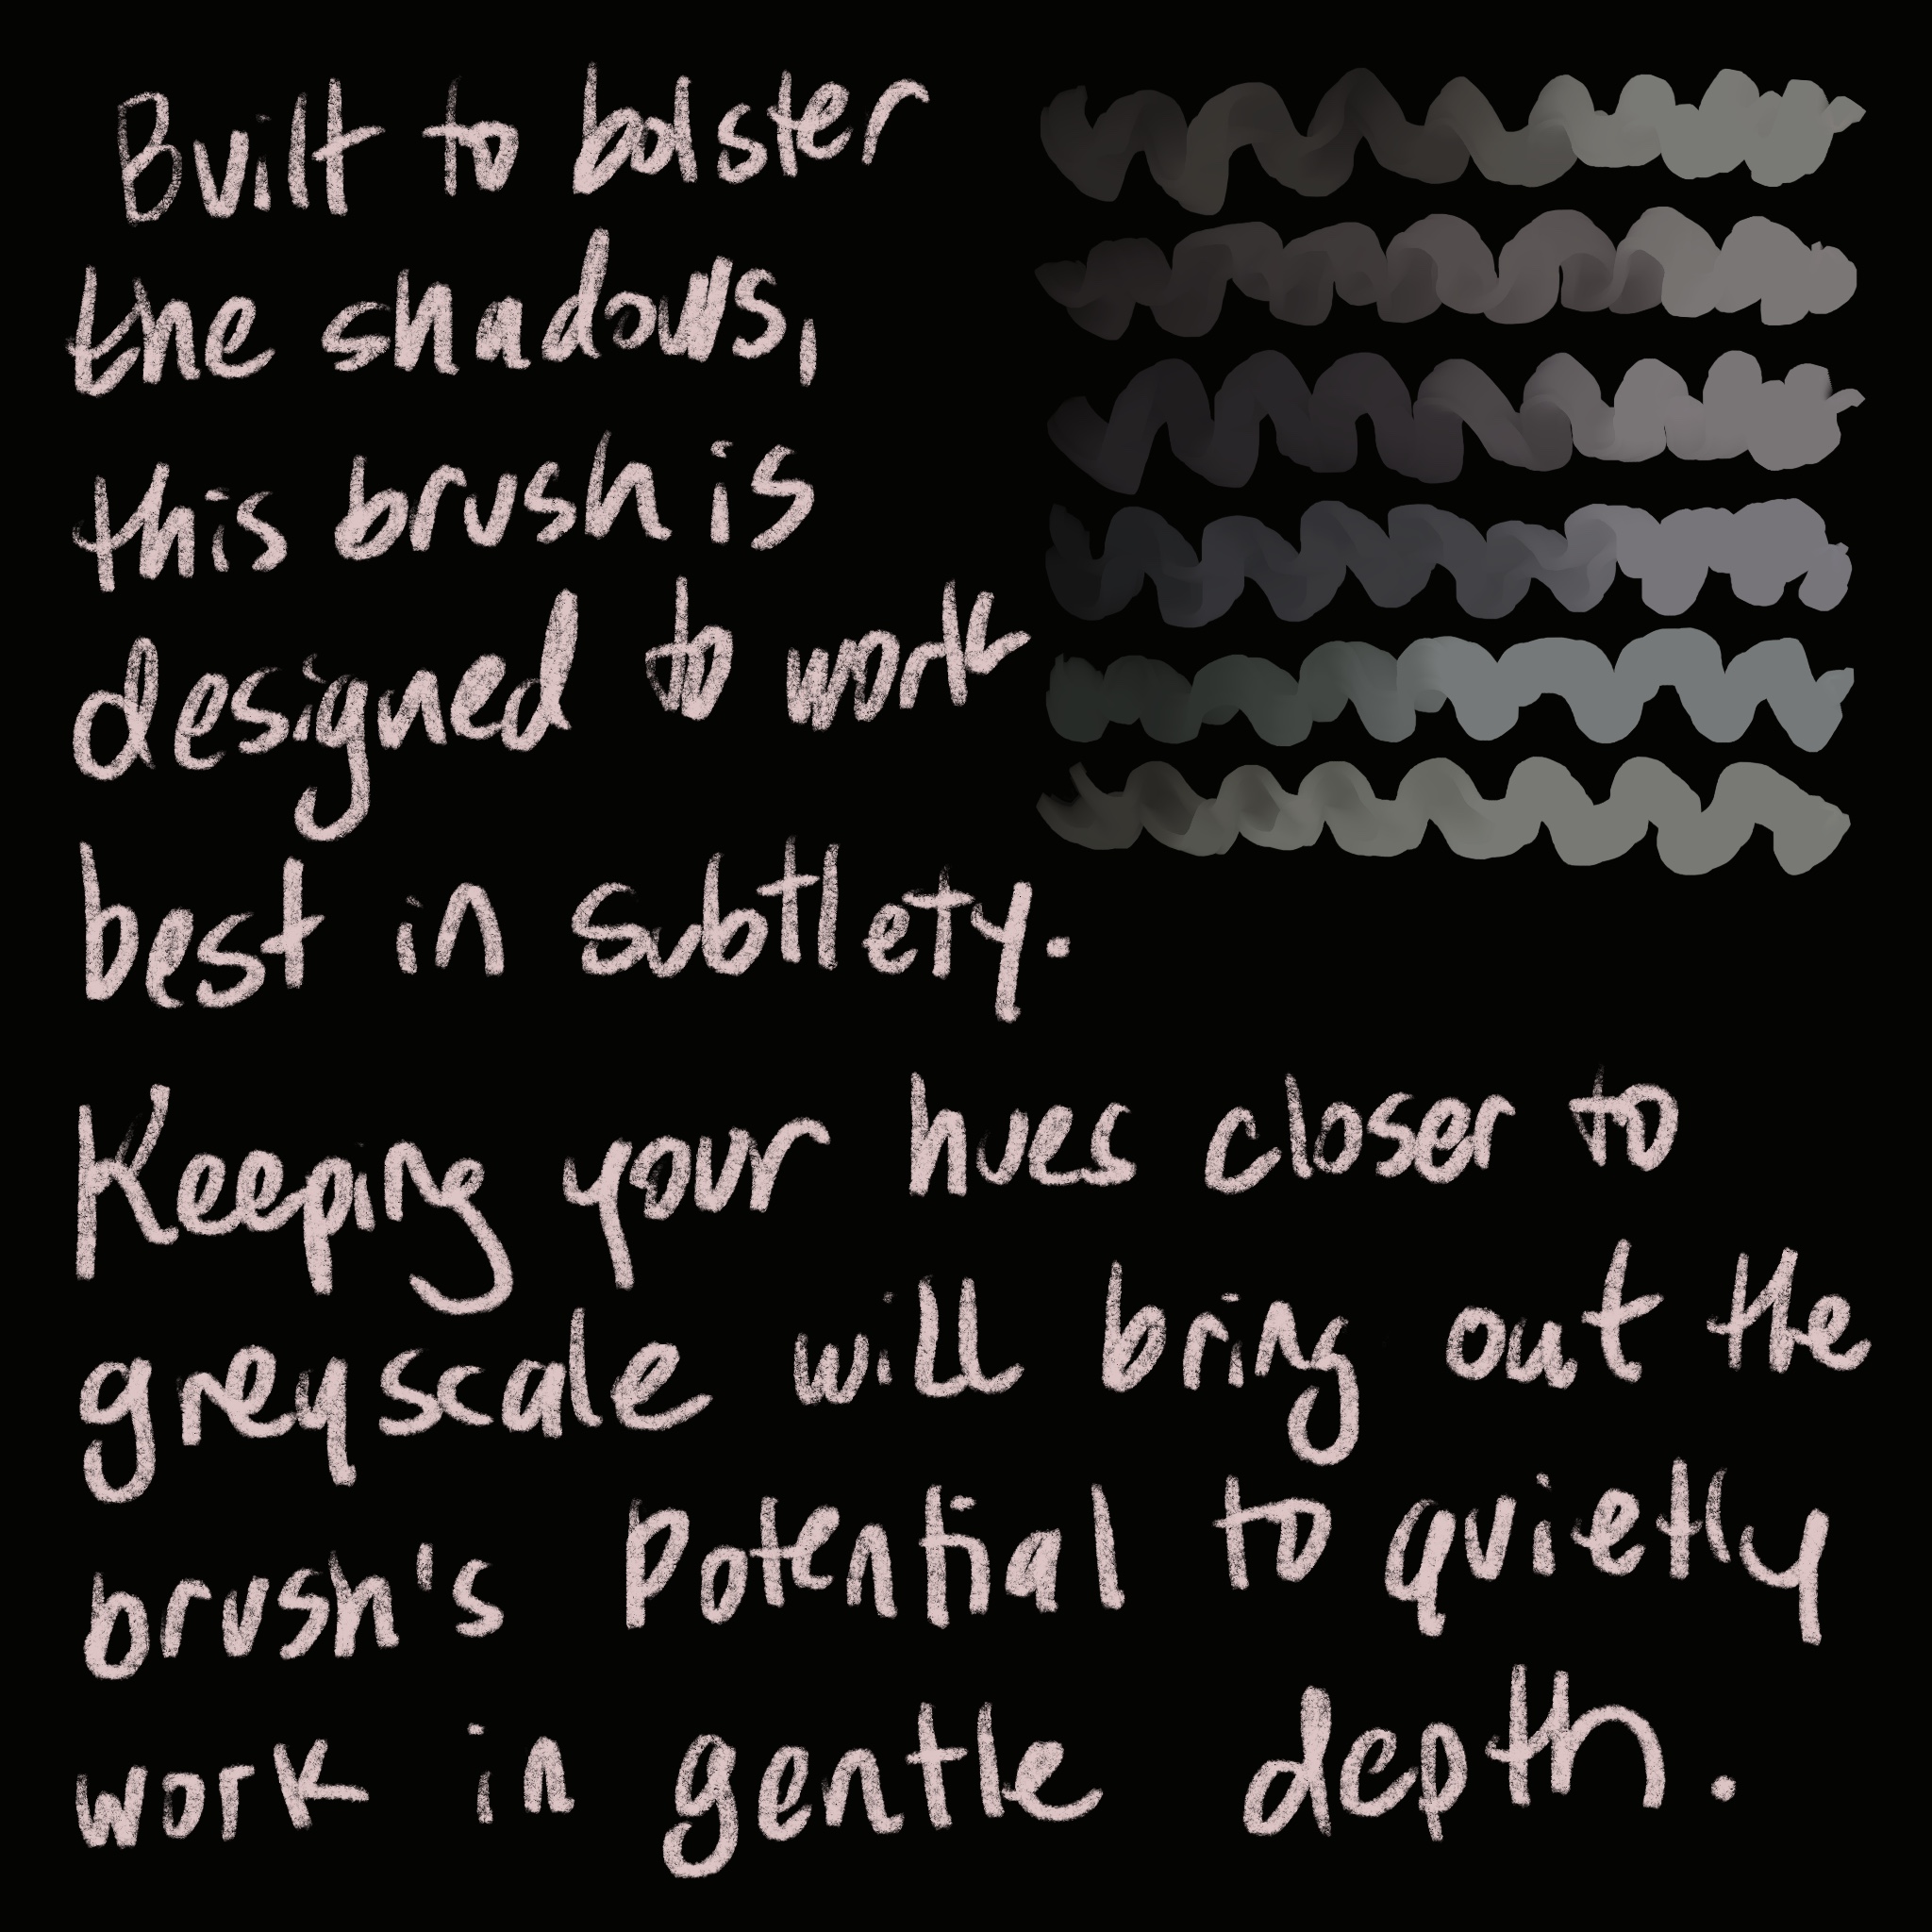 Built to bolster
the shadows,
this brush is
designed to work
best in subtlety.
Keeping your hues closer to
greyscale will bring out the
brush's potential to quietly
work in gentle depth.